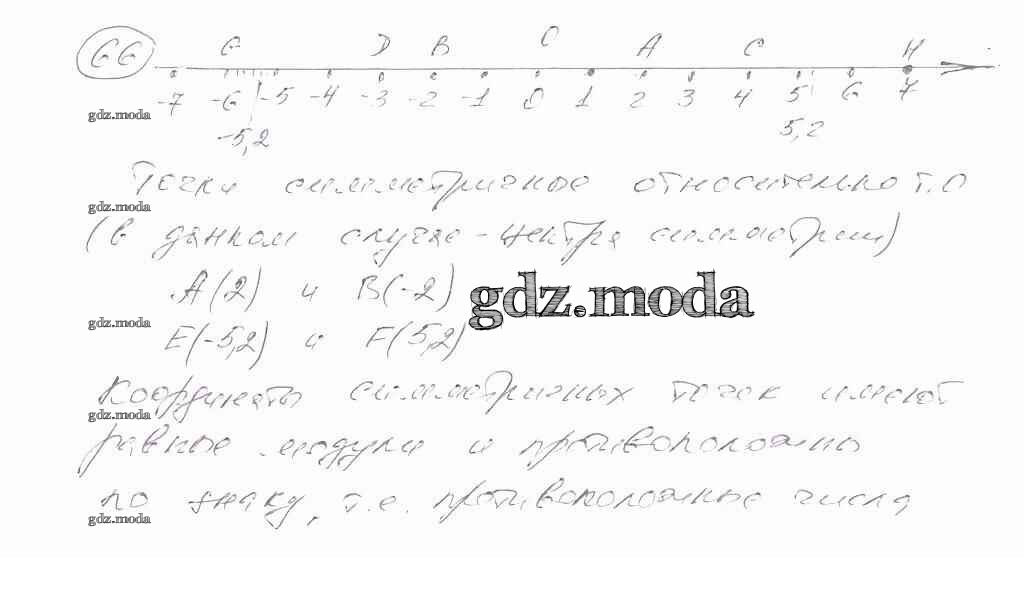 66
G D B O A C H
-7 -6 -5 -4 -3 -2 -1 0 1 2 3 4 5 6 7
gdz.moda
-5,2 5,2
Точки симметричные относительно т.О
gdz.moda
(в данном случае - центра симметрии)
A(2) и B(-2)
gdz.moda
gdz.moda
E(-5,2) и F(5,2)
Координаты симметричных точек имеют
gdz.moda
равные модули и противоположны
по знаку, т.е. противоположные числа
gdz.moda